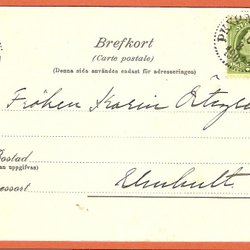 Brefkort
(Carte postale)
(Denna sida användes endast för adresseringen)
Fröken Karin
ostad
an uppgifvas)
essort
Elmhult.